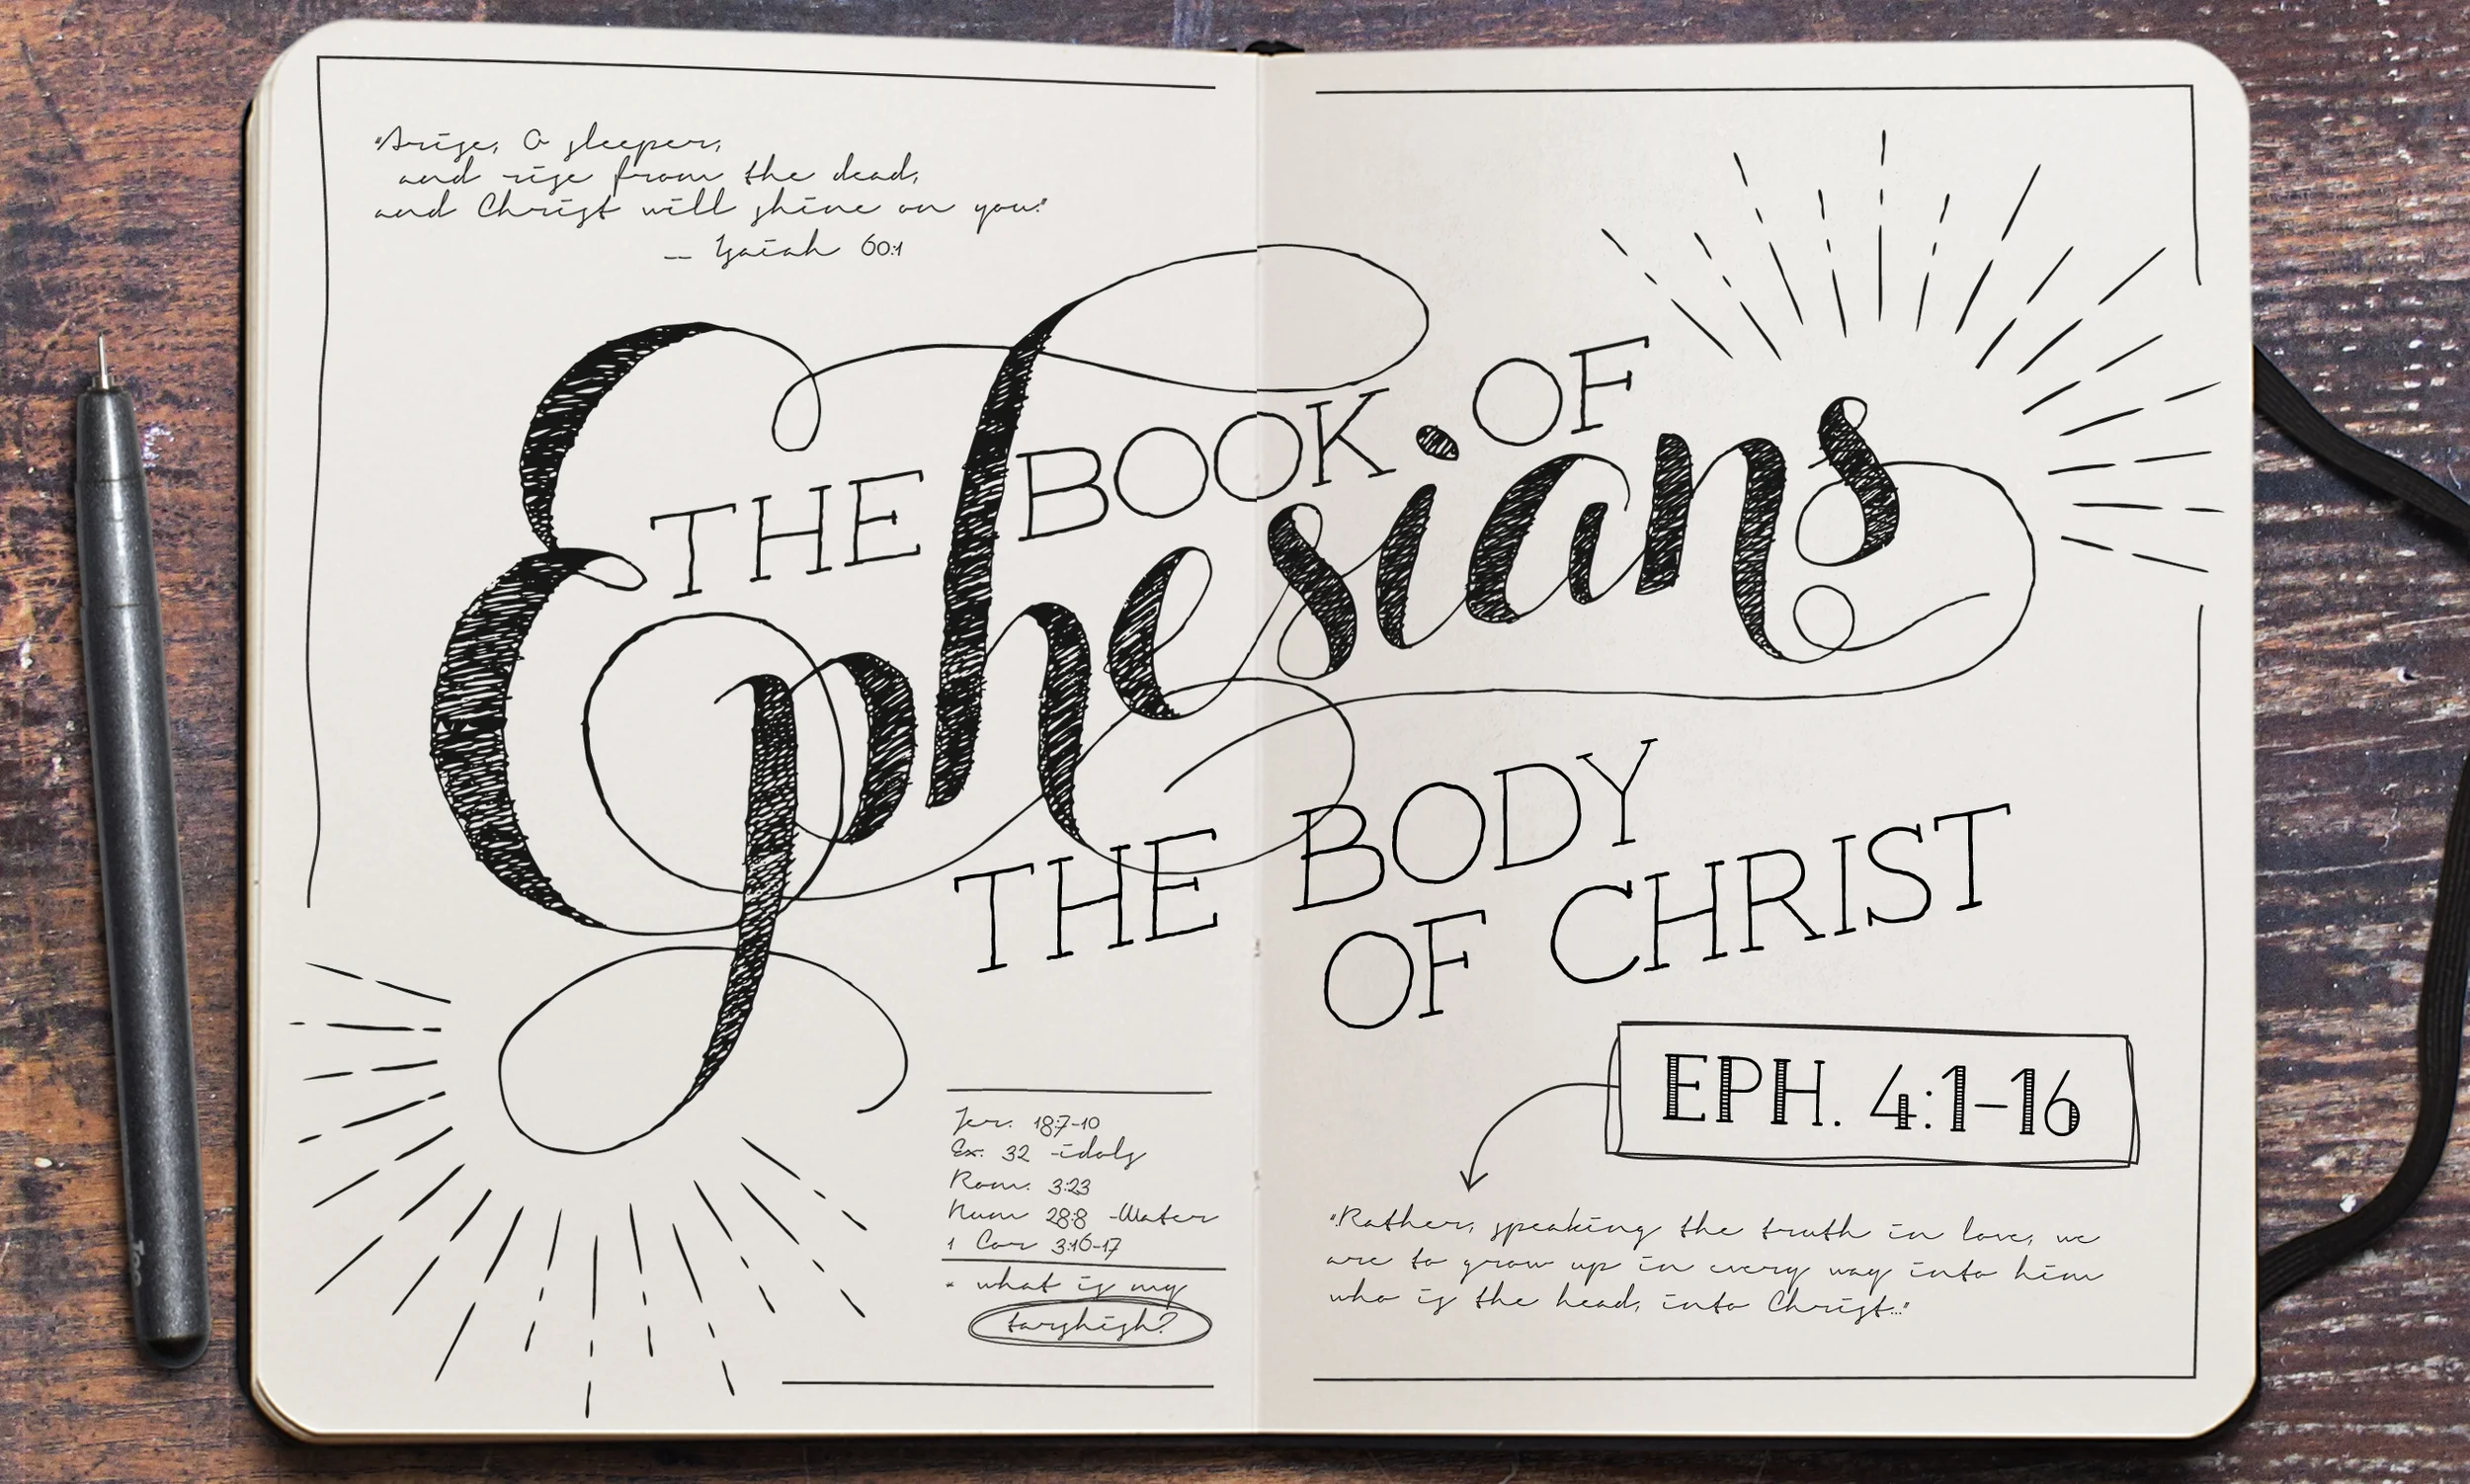 "Arise, O sleeper,
and rise from the dead,
and Christ will shine on you."
— Isaiah 60:1
THE BOOK OF
Ephesians
THE BODY
OF CHRIST
Jer. 18:7-10
Ex. 32 -idols
Rom. 3:23
Num 28:8 -Water
1 Cor 3:16-17
- what is my
tarshish?
EPH. 4:1-16
"Rather, speaking the truth in love, we
are to grow up in every way into him
who is the head, into Christ..."